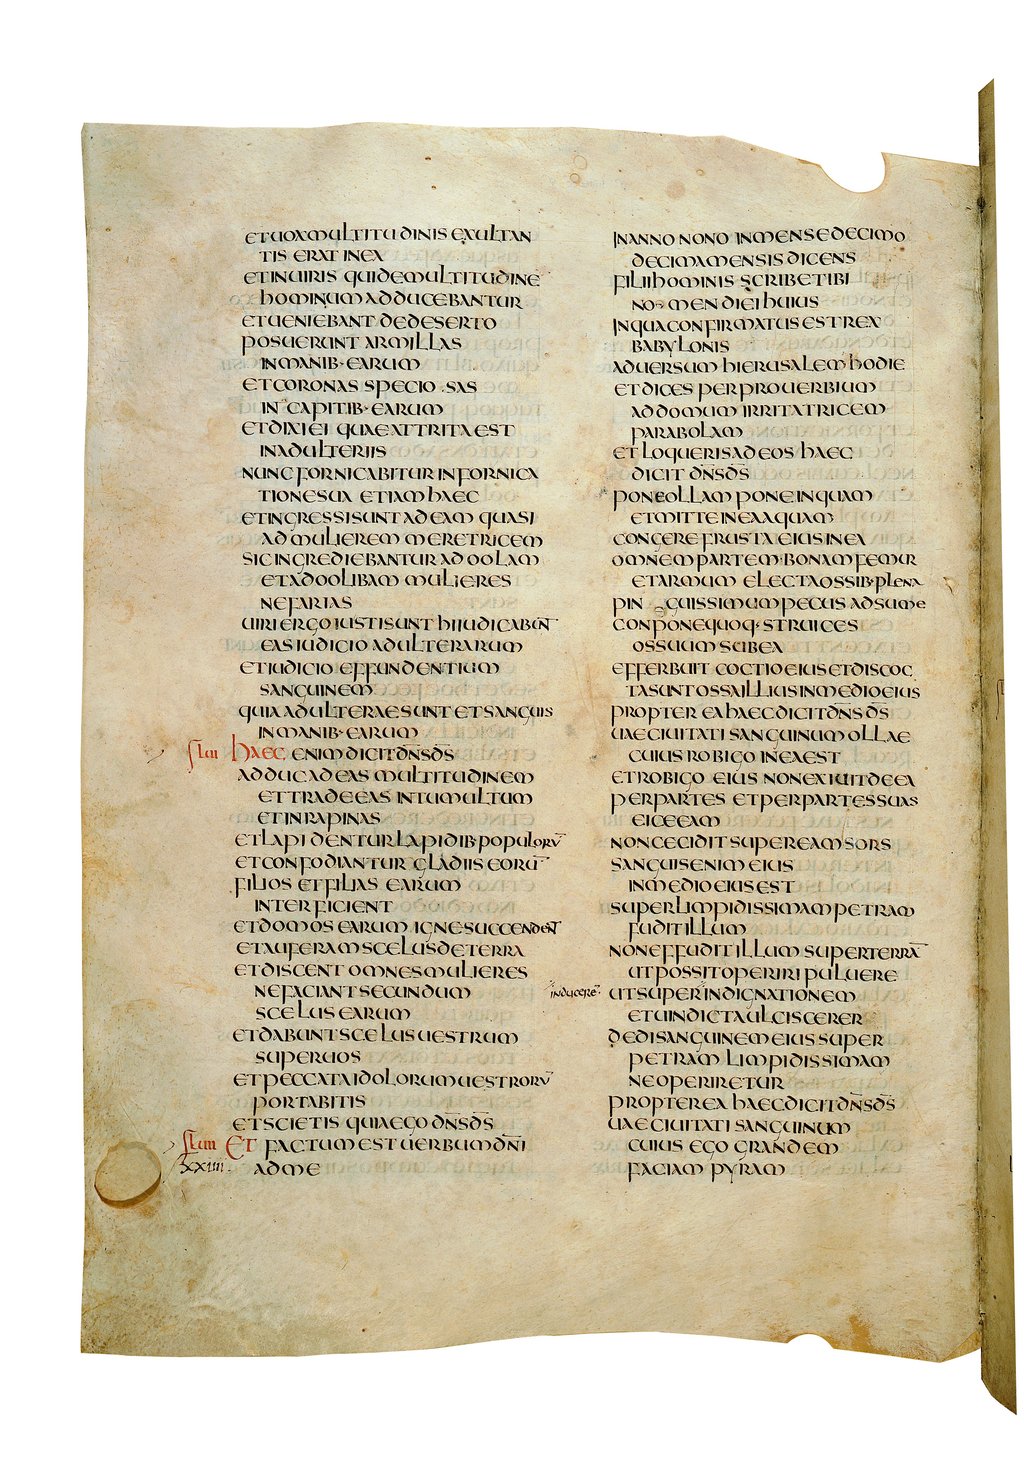 ETUOXMULTITUDINIS EXULTAN
TIS ERAT INEA
ETINUIRIS QUIDEMULTITUDINE
HOMINUM ADDUCEBANTUR
ETUENIEBANT DEDESERTO
POSUERUNT ARMILLAS
INMANIB· EARUM
ETCORONAS SPECIO SAS
IN CAPITIB· EARUM
ETDIXI EI QUAE ATTRITA EST
INADULTERIIS
NUNC FORNICABITUR IN FORNICA
TIONE SUA ETIAM HAEC
ETINGRESSI SUNT AD EAM QUASI
AD MULIEREM MERETRICEM
SIC INGREDIEBANTUR AD OOLAM
ETAD OOLIBAM MULIERES
NEFARIAS
UIRI ERGO IUSTI SUNT HI IUDICABUNT
EAS IUDICIO ADULTERARUM
ETIUDICIO EFFUNDENTIUM
SANGUINEM
QUIA ADULTERAE SUNT ET SANGUIS
INMANIB· EARUM
HAEC ENIM DICIT DN̄S D̄S
ADDUC AD EAS MULTITUDINEM
ETTRADE EAS IN TUMULTUM
ETIN RAPINAS
ETLAPIDENTUR LAPIDIB· POPULORŪ
ETCONFODIANTUR GLADIIS EORŪ
FILIOS ET FILIAS EARUM
INTERFICIENT
ETDOMOS EARUM IGNE SUCCENDENT
ETAUFERAM SCELUS DE TERRA
ETDISCENT OMNES MULIERES
NE FACIANT SECUNDUM
SCELUS EARUM
ETDABUNT SCELUS UESTRUM
SUPER UOS
ETPECCATA IDOLORUM UESTRORŪ
PORTABITIS
ETSCIETIS QUIA EGO DN̄S D̄S
ET FACTUM EST UERBUM DN̄I
XXIIII· AD ME
IN ANNO NONO IN MENSE DECIMO
DECIMA MENSIS DICENS
FILI HOMINIS SCRIBE TIBI
NOMEN DIEI HUIUS
IN QUA CONFIRMATUS EST REX
BABYLONIS
ADUERSUM HIERUSALEM HODIE
ETDICES PER PROUERBIUM
AD DOMUM IRRITATRICEM
PARABOLAM
ETLOQUERIS AD EOS HAEC
DICIT DN̄S D̄S
PONE OLLAM PONE INQUAM
ETMITTE IN EA AQUAM
CONGERE FRUSTA EIUS IN EA
OMNEM PARTEM BONAM FEMUR
ETARMUM ELECTA OSSIB· PLENA
PINGUISSIMUM PECUS ADSUME
CONPONE QUOQ· STRUICES
OSSUM SUB EA
EFFERBUIT COCTIO EIUS ET DISCOC
TA SUNT OSSA ILLIUS IN MEDIO EIUS
PROPTEREA HAEC DICIT DN̄S D̄S
UAE CIUITATI SANGUINUM OLLAE
CUIUS ROBIGO IN EA EST
ETROBIGO EIUS NON EXIUIT DE EA
PER PARTES ET PER PARTES SUAS
EICE EAM
NON CECIDIT SUPER EAM SORS
SANGUIS ENIM EIUS
IN MEDIO EIUS EST
SUPER LIMPIDISSIMAM PETRAM
FUDIT ILLUM
NON EFFUDIT ILLUM SUPER TERRĀ
UT POSSIT OPERIRI PULUERE
inducerē· UT SUPER INDIGNATIONEM
ETUINDICTA ULCISCERER
DEDI SANGUINEM EIUS SUPER
PETRAM LIMPIDISSIMAM
NE OPERIRETUR
PROPTEREA HAEC DICIT DN̄S D̄S
UAE CIUITATI SANGUINUM
CUIUS EGO GRANDEM
FACIAM PYRAM